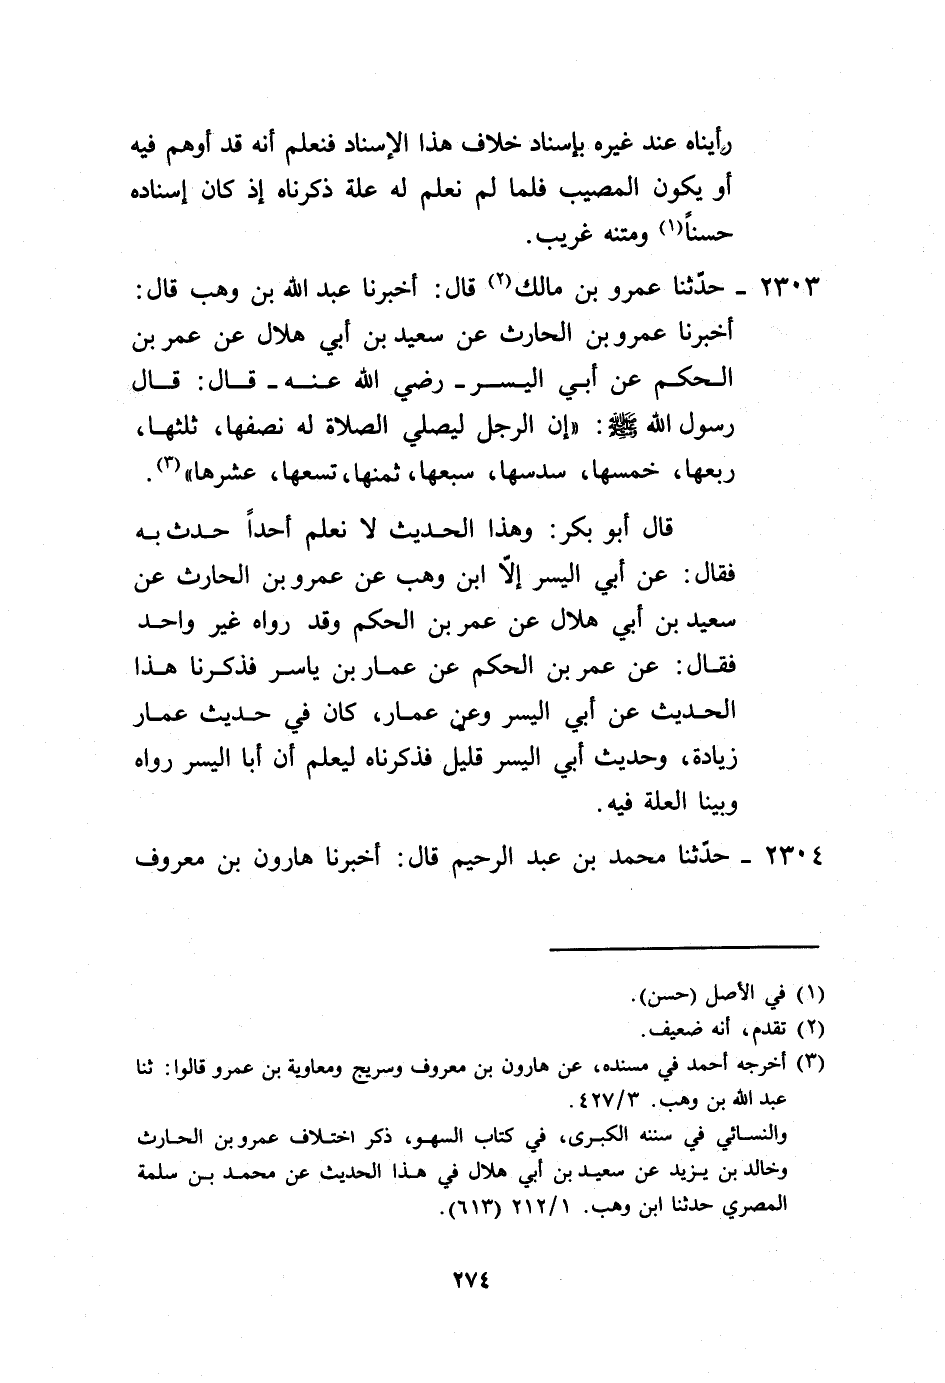 رأيناه عند غيره بإسناد خلاف هذا الإسناد فنعلم أنه قد أوهم فيه
أو يكون المصيب فلما لم نعلم له علة ذكرناه إذ كان إسناده
حسناً(١) ومتنه غريب.
٢٣٠٣ ـ حدّثنا عمرو بن مالك(٢) قال: أخبرنا عبد الله بن وهب قال:
أخبرنا عمرو بن الحارث عن سعيد بن أبي هلال عن عمر بن
الحكم عن أبي اليسر ـ رضي الله عنه ـ قال: قال
رسول الله ﷺ: «إن الرجل ليصلي الصلاة له نصفها، ثلثها،
ربعها، خمسها، سدسها، سبعها، ثمنها، تسعها، عشرها»(٣).
قال أبو بكر: وهذا الحديث لا نعلم أحداً حدث به
فقال: عن أبي اليسر إلاّ ابن وهب عن عمرو بن الحارث عن
سعيد بن أبي هلال عن عمر بن الحكم وقد رواه غير واحد
فقال: عن عمر بن الحكم عن عمار بن ياسر فذكرنا هذا
الحديث عن أبي اليسر وعن عمار، كان في حديث عمار
زيادة، وحديث أبي اليسر قليل فذكرناه ليعلم أن أبا اليسر رواه
وبينا العلة فيه.
٢٣٠٤ ـ حدّثنا محمد بن عبد الرحيم قال: أخبرنا هارون بن معروف
(١) في الأصل (حسن).
(٢) تقدم، أنه ضعيف.
(٣) أخرجه أحمد في مسنده، عن هارون بن معروف وسريج ومعاوية بن عمرو قالوا: ثنا
عبد الله بن وهب. ٤٢٧/٣.
والنسائي في سننه الكبرى، في كتاب السهو، ذكر اختلاف عمرو بن الحارث
وخالد بن يزيد عن سعيد بن أبي هلال في هذا الحديث عن محمد بن سلمة
المصري حدثنا ابن وهب. ٢١٢/١ (٦١٣).
٢٧٤